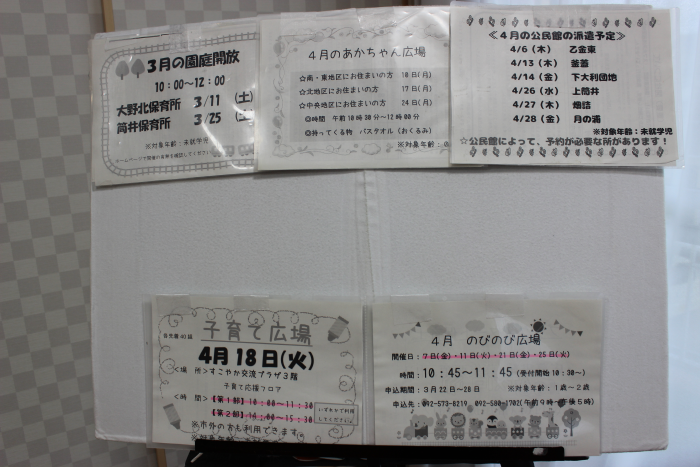 3月の園庭開放
10:00~12:00
大野北保育所 3/11 (土)
筒井保育所 3/25 (土)
※対象年齢:未就学児
4月のあかちゃん広場
☆南・東地区にお住まいの方 10日(月)
☆北地区にお住まいの方 17日(月)
☆中央地区にお住まいの方 24日(月)
◎時間 午前10時30分~12時00分
◎持ってくる物 バスタオル(おくるみ)
※対象年齢:
≪4月の公民館の派遣予定≫
4/6(木) 乙金東
4/13(木) 釜蓋
4/14(金) 下大利団地
4/26(水) 上筒井
4/27(木) 畑詰
4/28(金) 月の浦
※対象年齢:未就学児
☆公民館によって、予約が必要な所があります!
子育て広場
4月18日(火)
<場 所>すこやか交流プラザ3階
子育て応援フロア
<時 間>【第1部】10:00~11:30
【第2部】14:00~15:30
いずれかで利用
してください
※市外の方も利用できます
4月 のびのび広場
開催日:7日(金)・11日(火)・21日(金)・25日(火)
時間:10:45~11:45 (受付開始10:30~)
申込期間:3月22日~28日 ※対象年齢:1歳~2歳
申込先:092-573-8219、092-580-1702(午前9時~午後5時)